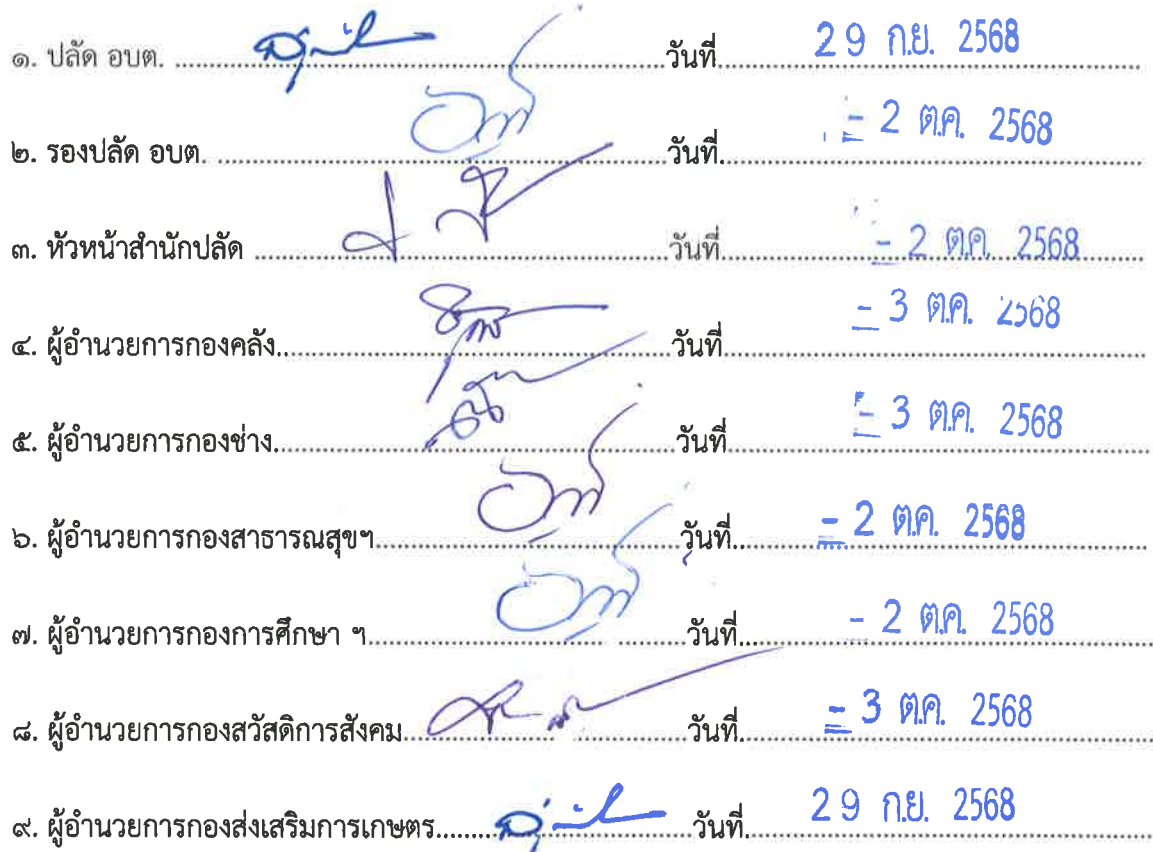 ๑. ปลัด อบต. ........................ วันที่ 29 ก.ย. 2568
๒. รองปลัด อบต. ........................ วันที่ - 2 ต.ค. 2568
๓. หัวหน้าสำนักปลัด ........................ วันที่ - 2 ต.ค. 2568
๔. ผู้อำนวยการกองคลัง........................ วันที่ - 3 ต.ค. 2568
๕. ผู้อำนวยการกองช่าง........................ วันที่ - 3 ต.ค. 2568
๖. ผู้อำนวยการกองสาธารณสุขฯ........................ วันที่ - 2 ต.ค. 2568
๗. ผู้อำนวยการกองการศึกษา ฯ........................ วันที่ - 2 ต.ค. 2568
๘. ผู้อำนวยการกองสวัสดิการสังคม........................ วันที่ - 3 ต.ค. 2568
๙. ผู้อำนวยการกองส่งเสริมการเกษตร........................ วันที่ 29 ก.ย. 2568